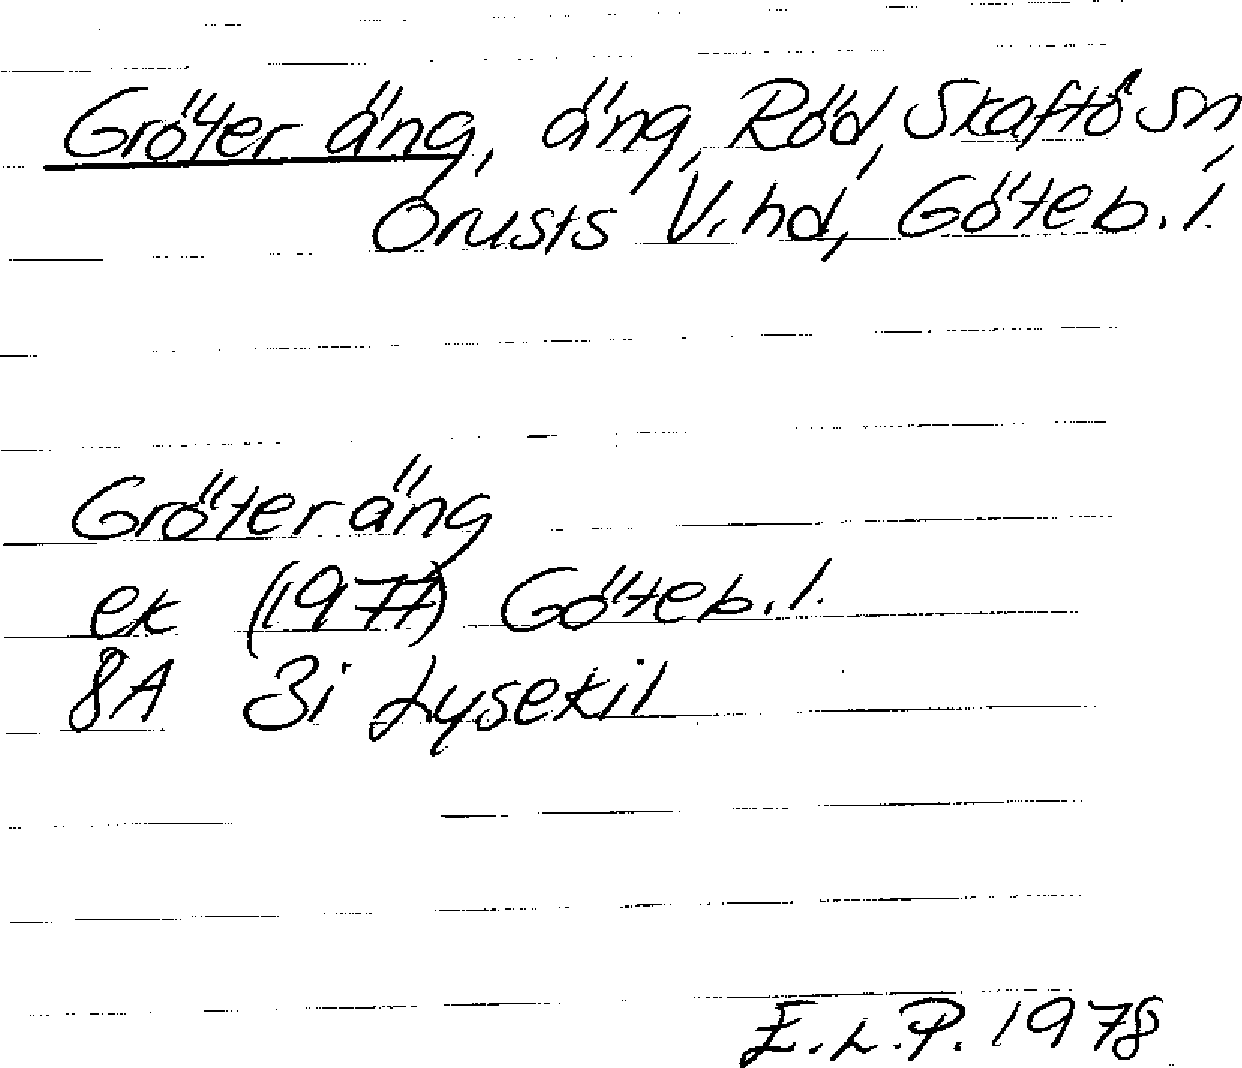 Gröter äng, äng, Röd, Skaftö sn,
Orusts V. hd, Göteb. l.
Gröter äng
ek (1977) Göteb. l.
8A 3i Lysekil
E.L.P. 1978